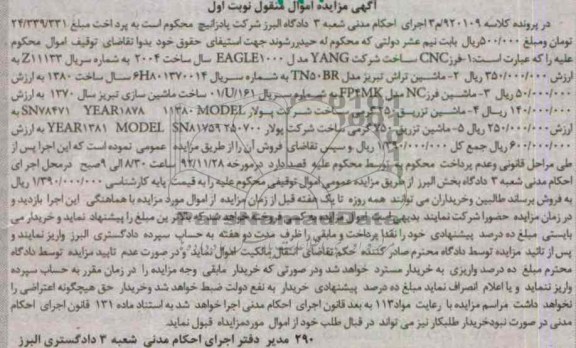 آگهی مزایده اموال منقول نوبت اول
در پرونده کلاسه ۹۲۰۱۰۹م۳ اجرای احکام مدنی شعبه ۳ دادگاه البرز شرکت پادژالیچ محکوم است به پرداخت مبلغ ۲۴/۳۳۹/۳۳۱
تومان ومبلغ ۵۰۰/۰۰۰ریال بابت نیم عشر دولتی که محکوم له حیدررشوند جهت استیفای حقوق خود بدوا تقاضای توقیف اموال محکوم
علیه را که عبارت است:۱-فرزCNC ساخت شرکت YANG مدل EAGLE۱۰۰۰ سال ساخت ۲۰۰۴ به شماره سریال Z۱۱۱۳۳ به
ارزش ۳۵۰/۰۰۰/۰۰۰ ریال ۲- ماشین تراش تبریز مدل TN۵۰BR به شماره سریال ۶HA۰۱۳۷۰۰۱۴ سال ساخت ۱۳۸۰ به ارزش
۵۰/۰۰۰/۰۰۰ ریال ۳- ماشین فرزNC مدل FP۴MK به شماره سریال ۰۱/U/۱۶۱ ساخت ماشین سازی تبریز سال ۱۳۷۰ به ارزش
۱۴۰/۰۰۰/۰۰۰ ریال ۴- ماشین تزریق ۲۵۰ ساخت شرکت پولار MODEL ۱۳۸۰ YEAR۱۸۷۸ SN۷۸۴۷۱ به
ارزش ۲۵۰/۰۰۰/۰۰۰ ریال ۵- ماشین تزریق ۷۵۰ گرمی ساخت شرکت پولار ۲۵۰۷۰۰ YEAR۱۳۸۱ MODEL SN۸۱۷۵۹ به ارزش
۶۰۰/۰۰۰/۰۰۰ ریال جمع کل ۱/۳۹۰/۰۰۰/۰۰۰ ریال و سپس تقاضای فروش آن را از طریق مزایده عمومی نموده است که این اجرا پس از
طی مراحل قانونی وعدم پرداخت محکوم به توسط محکوم علیه قصد دارد درمورخه ۹۲/۱۱/۲۸ ساعت ۸/۳۰ الی ۹صبح درمحل اجرای
احکام مدنی شعبه ۳ دادگاه بخش البرز از طریق مزایده عمومی اموال توقیفی محکوم علیه را به قیمت پایه کارشناسی ۱/۳۹۰/۰۰۰/۰۰۰ ریال
به فروش برساند طالبین وخریداران می توانند همه روزه تا یک هفته قبل از زمان مزایده از اموال مورد مزایده با هماهنگی این اجرا بازدید و
در زمان مزایده حضورا شرکت نمایند بدیهی است مبلغ را پیشنهاد نماید و خریدار می
بایستی مبلغ ده درصد پیشنهادی خود را نقدا پرداخت و مابقی را ظرف مدت دو هفته به حساب سپرده دادگستری البرز واریز نمایند و
پس از تائید مزایده توسط دادگاه محترم صادر کننده حکم تقاضای انتقال مالکیت اموال نماید و در صورت عدم تایید مزایده توسط دادگاه
محترم مبلغ ده درصد واریزی به خریدار مسترد خواهد شد ودر صورتی که خریدار مابقی وجه مزایده را در زمان مقرر به حساب سپرده
واریز ننماید و یا اعلام انصراف نماید مبلغ ده درصد پیشنهادی خریدار به نفع دولت ضبط خواهد شد وخریدار حق هیچگونه اعتراضی را
نخواهد داشت مراسم مزایده با رعایت مواد۱۱۳ به بعد قانون اجرای احکام مدنی اجرا خواهد شد به استناد ماده ۱۳۱ قانون اجرای احکام
مدنی در صورت نبودخریدار طلبکار نیز می تواند در قبال طلب خود از اموال موردمزایداه قبول نماید.
۲۹۰ مدیر دفتر اجرای احکام مدنی شعبه ۳ دادگستری البرز